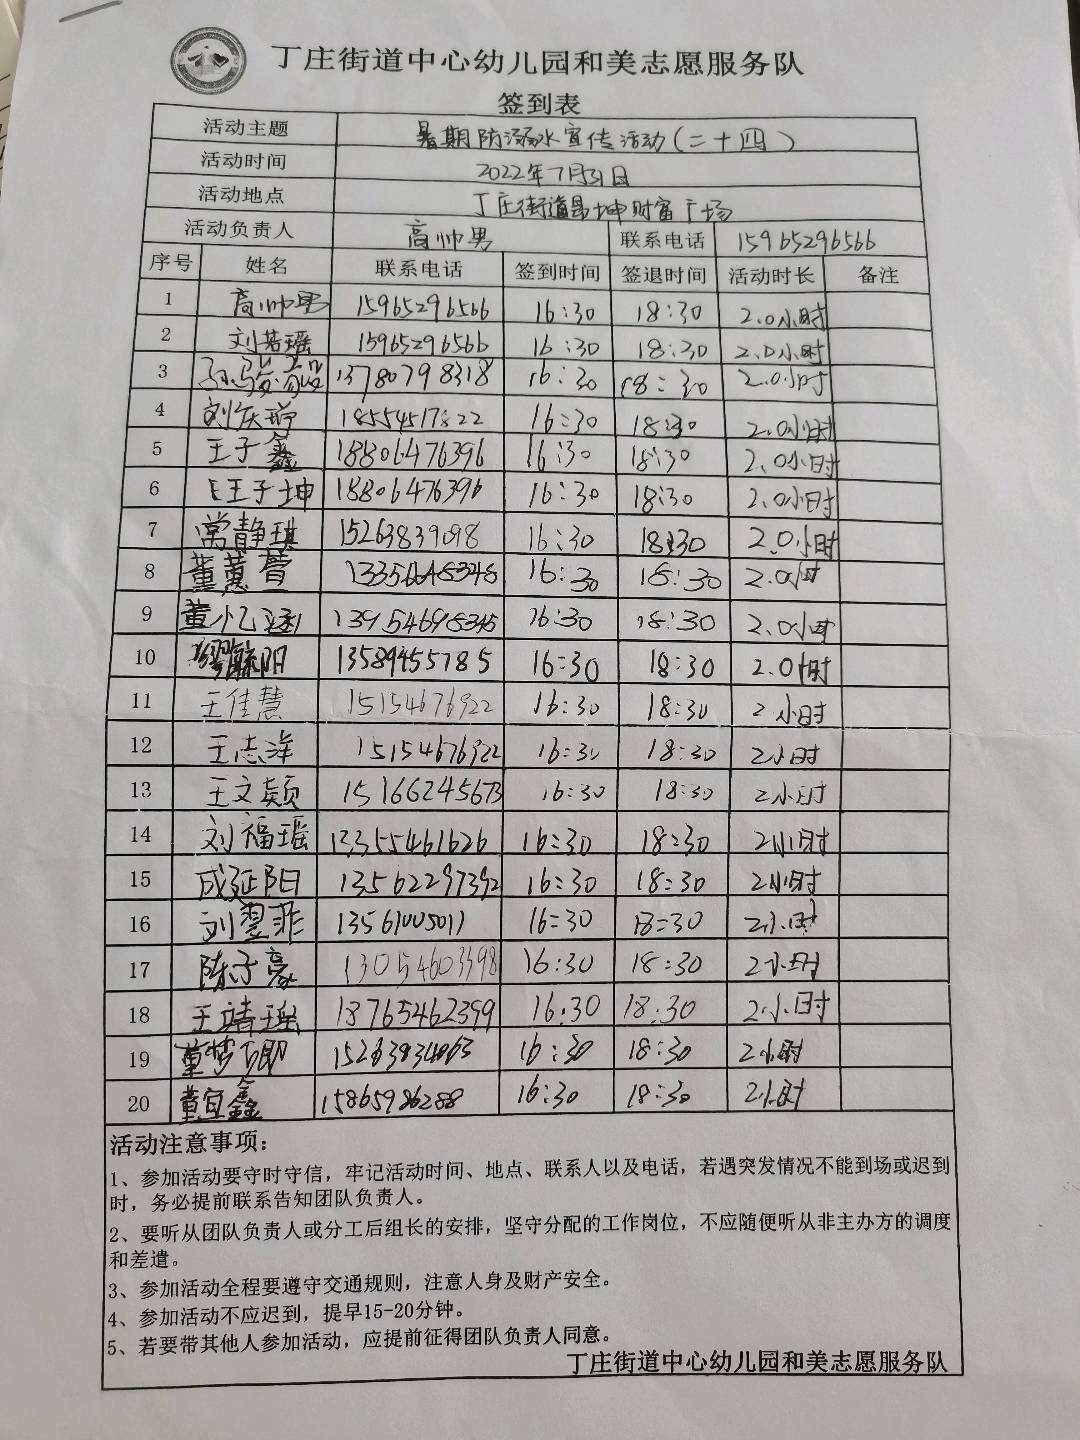 丁庄街道中心幼儿园和美志愿服务队
签到表
活动主题 暑期防溺水宣传活动(二十四)
活动时间 2022年7月31日
活动地点 丁庄街道昌坤财富广场
活动负责人 高帅男 联系电话 15965296566
序号 姓名 联系电话 签到时间 签退时间 活动时长 备注
1 高帅男 15965296566 16:30 18:30 2.0小时
2 刘若瑶 15965296566 16:30 18:30 2.0小时
3 13780798318 16:30 18:30 2.0小时
4 18554517822 16:30 18:30 2.0小时
5 王子鑫 18806476396 16:30 18:30 2.0小时
6 王子坤 18806476396 16:30 18:30 2.0小时
7 常静琪 15263839098 16:30 18:30 2.0小时
8 董蕙萱 16:30 18:30 2.0小时
9 16:30 18:30 2.0小时
10 13589455785 16:30 18:30 2.0小时
11 王佳慧 15154676922 16:30 18:30 2小时
12 王志洋 15154676922 16:30 18:30 2小时
13 王文颖 15166245673 16:30 18:30 2小时
14 刘福瑶 13355461626 16:30 18:30 2小时
15 成延阳 13562297392 16:30 18:30 2小时
16 刘翌菲 13561005011 16:30 18:30 2小时
17 陈子豪 13054603398 16:30 18:30 2小时
18 王靖瑶 18765462399 16:30 18:30 2小时
19 16:30 18:30 2小时
20 董宜鑫 15865986288 16:30 18:30 2小时
活动注意事项:
1、参加活动要守时守信,牢记活动时间、地点、联系人以及电话,若遇突发情况不能到场或迟到
时,务必提前联系告知团队负责人。
2、要听从团队负责人或分工后组长的安排,坚守分配的工作岗位,不应随便听从非主办方的调度
和差遣。
3、参加活动全程要遵守交通规则,注意人身及财产安全。
4、参加活动不应迟到,提早15-20分钟。
5、若要带其他人参加活动,应提前征得团队负责人同意。
丁庄街道中心幼儿园和美志愿服务队